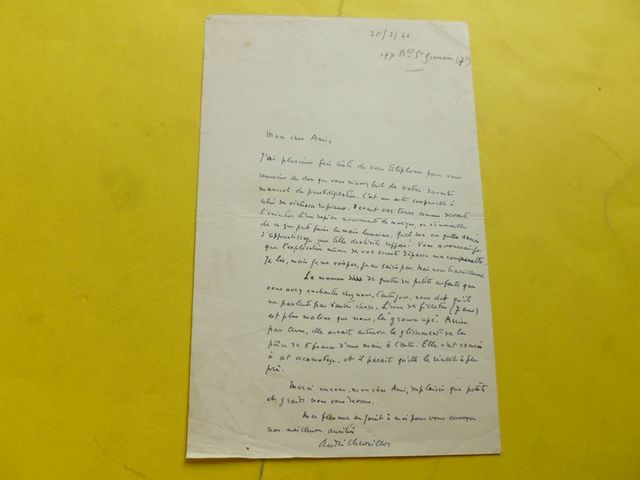 20/3/46.
197 Bd St Germain (7e)
Mon cher Ami,
J'ai plusieurs fois tenté de vous téléphoner pour vous
remercier du don que vous m'avez fait de votre savant
manuel de prestidigitation. C'est un art comparable à
celui du virtuose au piano. Devant vos tours comme devant
l'exécution d'un rapide mouvement de musique, on s'émerveille
de ce que peut faire la main humaine. Quel
d'apprentissage une telle dextérité suppose! Vous
que l'explication même de vos secrets dépasse ma
Je lis, mais je ne vois pas, je ne saisis pas,
La maman de quatre des petits enfants que
vous avez enchantés chez nous, l'autre jour, nous dit qu'ils
ne parlent pas d'autre chose. L'une des fillettes (7 ans)
est plus maline que nous, les grown ups. Assise
par terre, elle aurait entrevu le glissement de la
pièce de 5 francs d'une main à l'autre. Elle s'est exercée
à cet escamotage, et il paraît qu'elle le réussit à peu
près.
Merci encore, mon cher Ami, du plaisir que petits
et grands nous vous devons.
Ma femme se joint à moi pour vous envoyer
nos meilleures amitiés
André Chevrillon